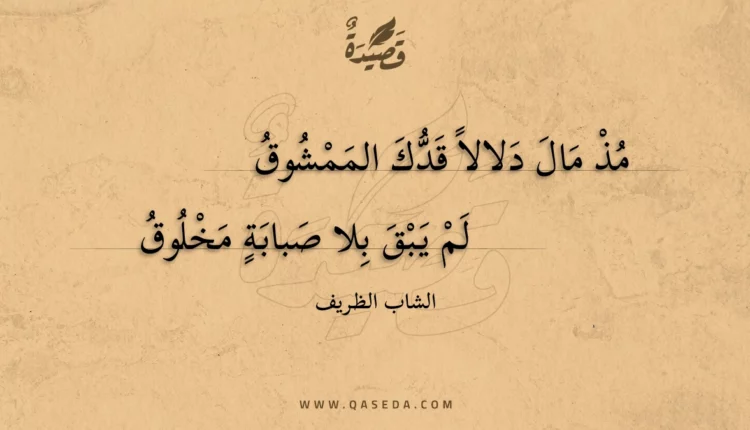 قَصِيدَةٌ
مُذْ مَالَ دَلالاً قَدُّكَ المَمْشُوقُ
لَمْ يَبْقَ بِلا صَبابَةٍ مَخْلُوقُ
الشاب الظريف
WWW.QASEDA.COM